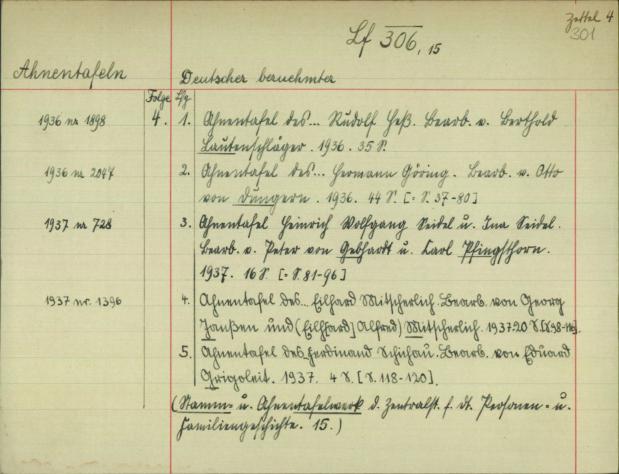 Zettel 4
301
Lf 306, 15
Ahnentafeln Deutscher beruehmter
Folge Lfg
1936 nr 1898 4. 1. Ahnentafel des... Rudolf Heß. Bearb. v. Berthold
Lautenschläger. 1936. 35 S.
1936 nr 2047 2. Ahnentafel des... Hermann Göring. Bearb. v. Otto
von Dungern. 1936. 44 S. [= S. 37-80]
1937 nr 728 3. Ahnentafel Heinrich Wolfgang Seidel u. Ina Seidel.
Bearb. v. Peter von Gebhardt u. Carl Pfingsthorn.
1937. 16 S. [= S. 81-96]
1937 nr. 1396 4. Ahnentafel des... Eilhard Mitscherlich. Bearb. von Georg
Janßen und (Eilh[ard] Alfred) Mitscherlich. 1937. 20 S.
5. Ahnentafel des Ferdinand Schichau. Bearb. von Eduard
Grigoleit. 1937. 4 S. [S. 118-120].
(Stamm- u. Ahnentafelwerk d. Zentralst. f. dt. Personen- u.
Familiengeschichte. 15.)